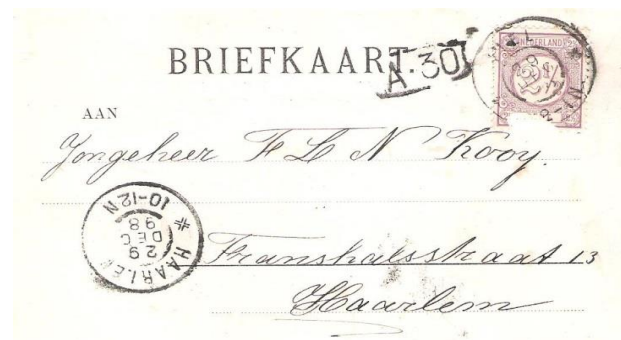 BRIEFKAART.
A.30
NEDERLAND
AAN
Jongeheer F L N Kooy.
HAARLEM
29
DEC
98
10-12N
Franshalsstraat 13
Haarlem